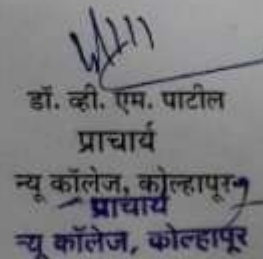 डॉ. व्ही. एम. पाटील
प्राचार्य
न्यू कॉलेज, कोल्हापूर
प्राचार्य
न्यू कॉलेज, कोल्हापूर